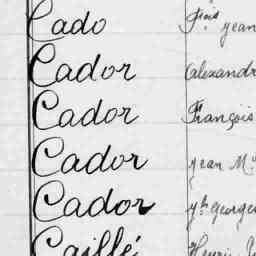 Cado Fçois jean
Cador Alexandr
Cador François
Cador jean M
Cador yh georges
Caillé Henri